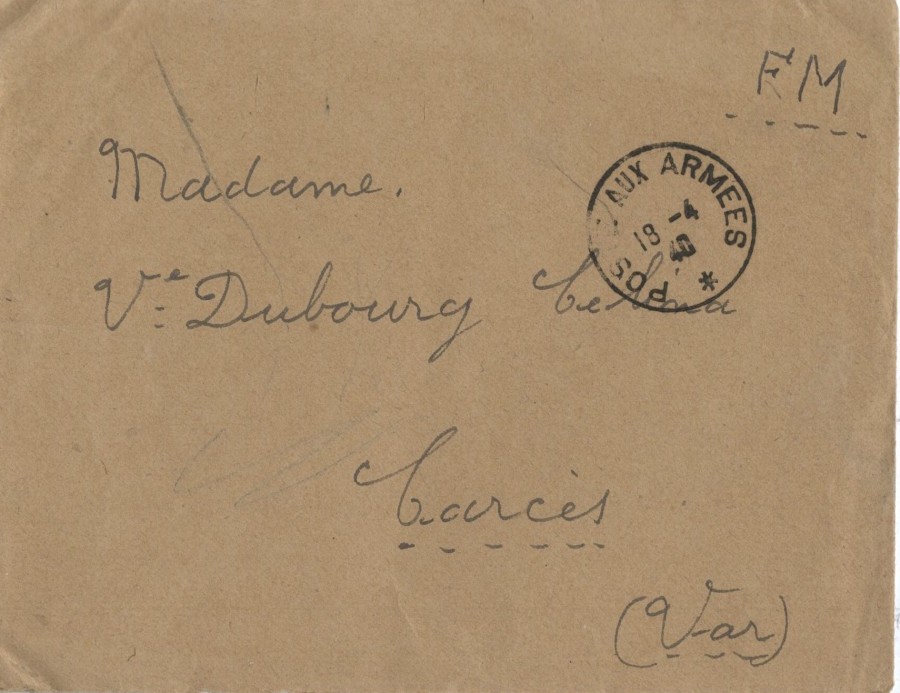 FM
Madame.
Vᵉ Dubourg
POSTES AUX ARMEES *
18 -4
Carcès
(Var)